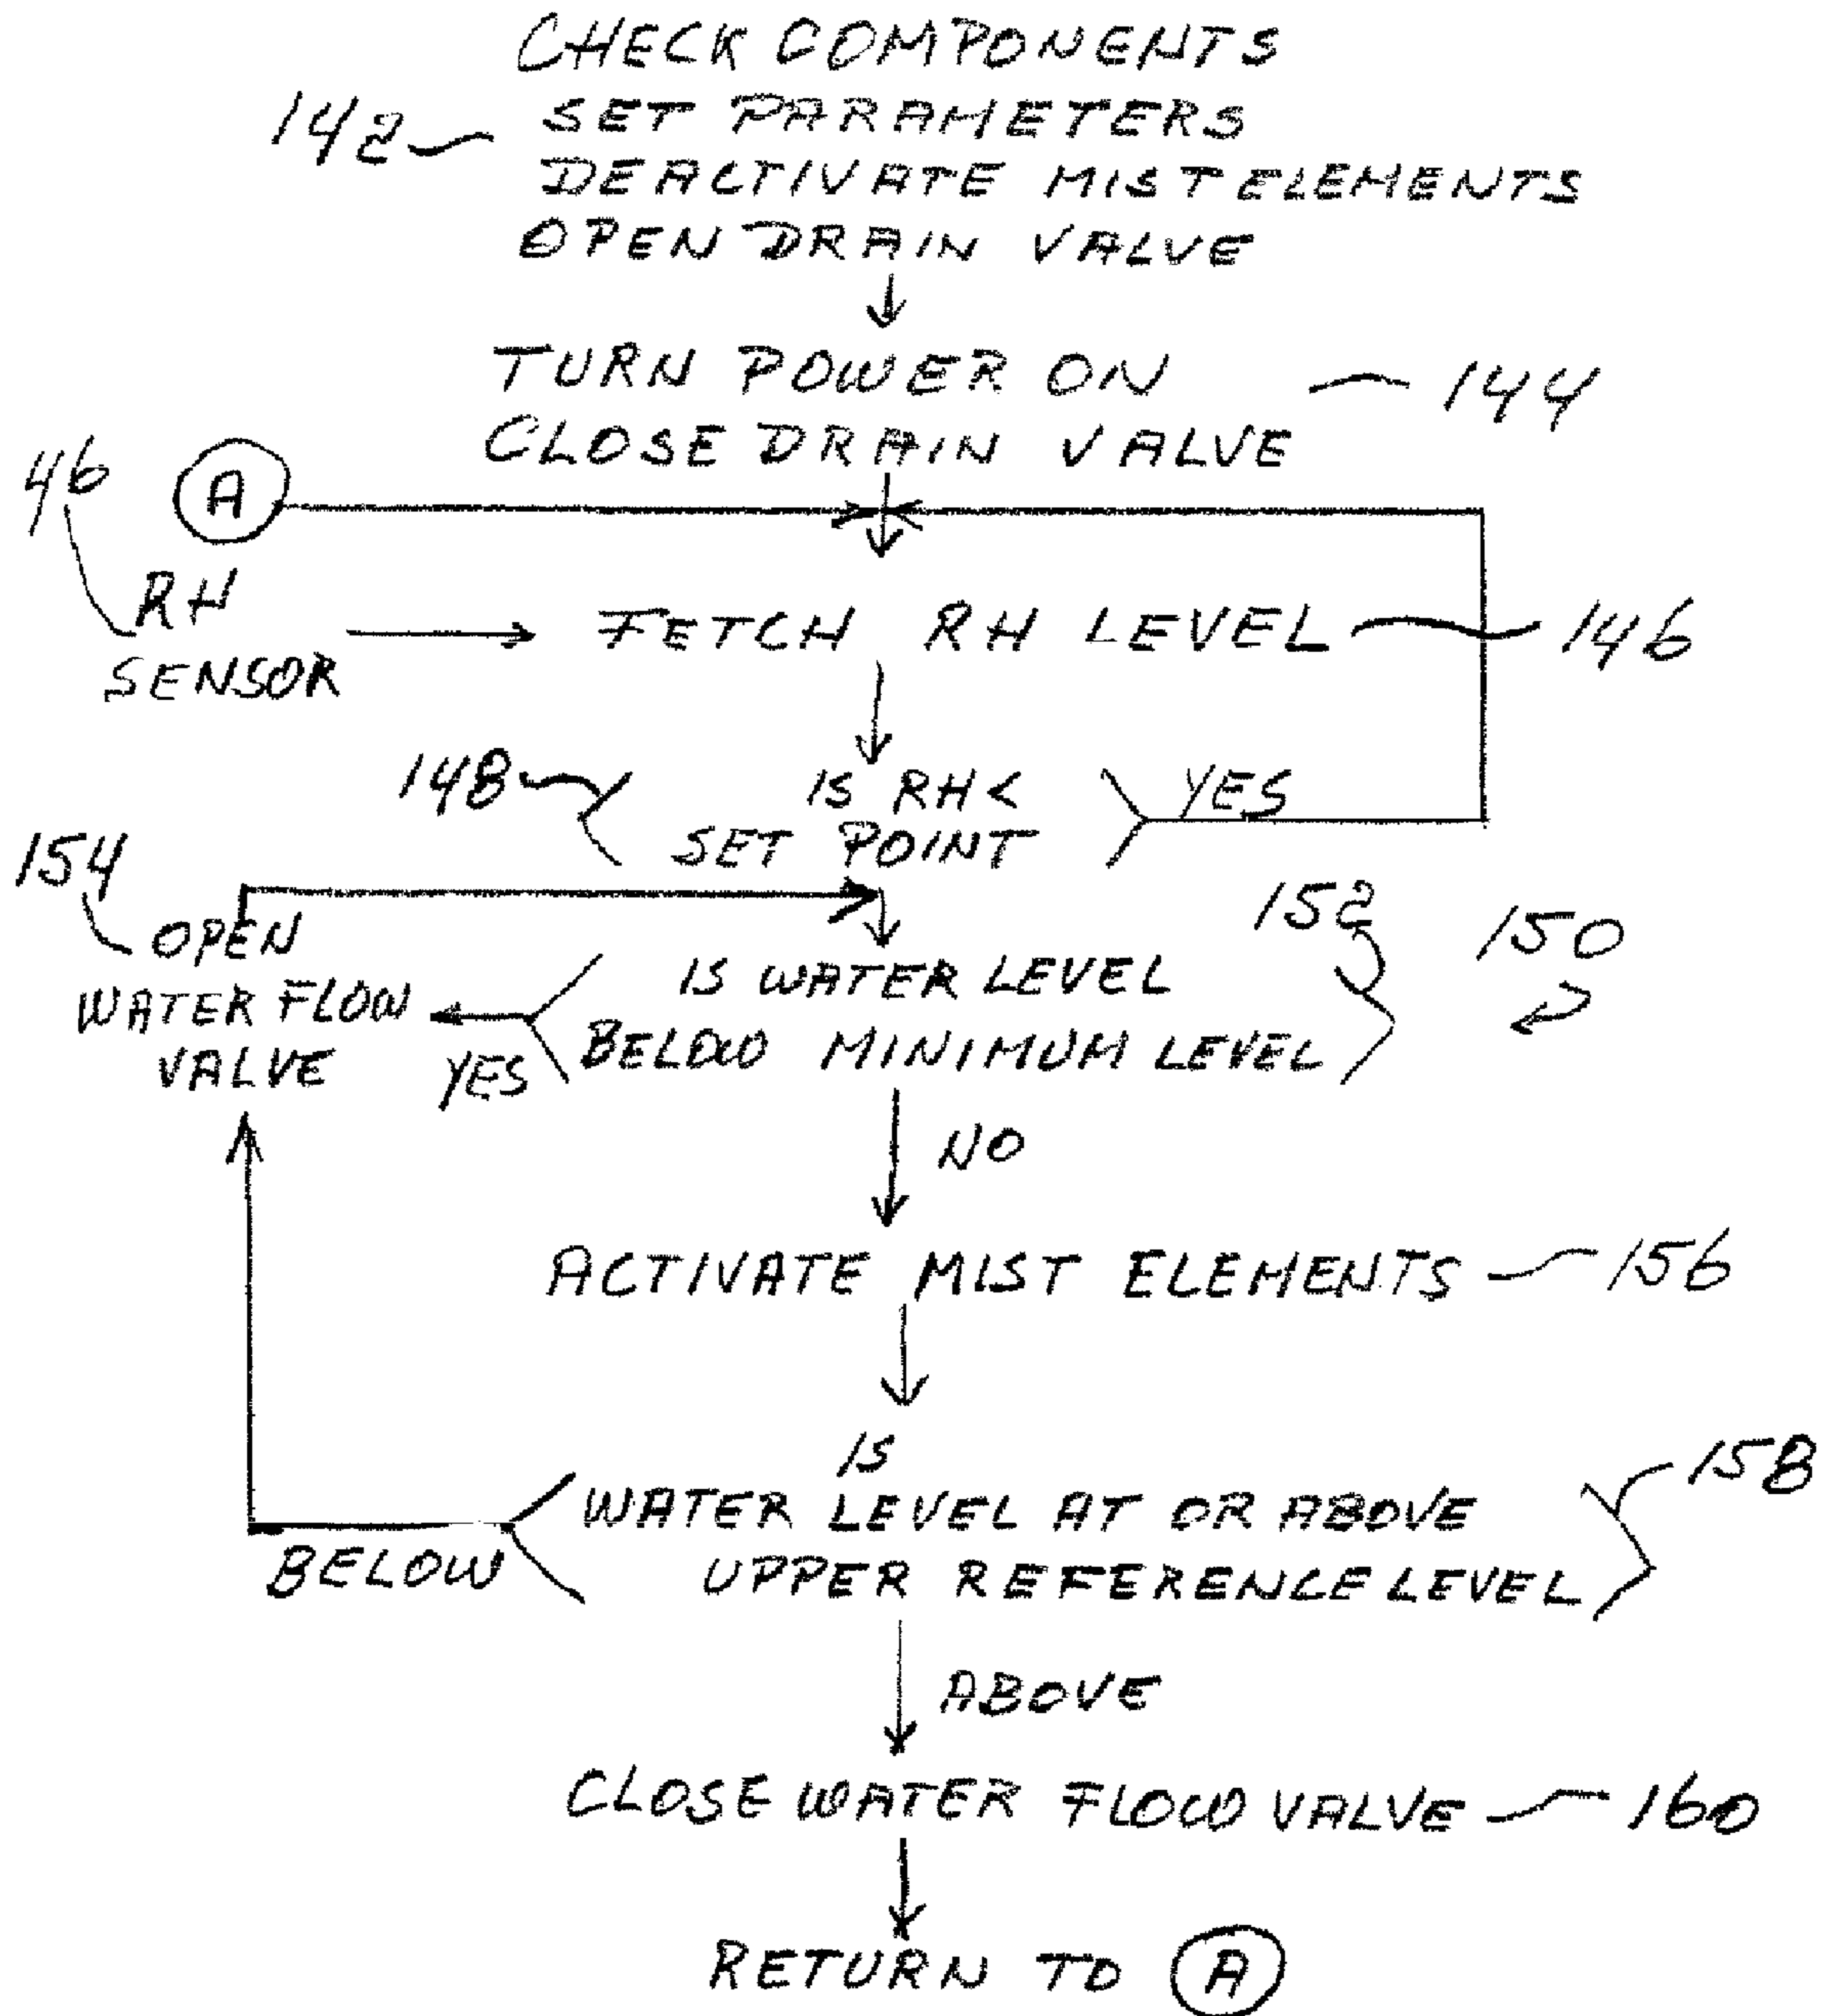 CHECK COMPONENTS
142 SET PARAMETERS
DEACTIVATE MIST ELEMENTS
OPEN DRAIN VALVE
TURN POWER ON 144
CLOSE DRAIN VALVE
46 A
RH
SENSOR
FETCH RH LEVEL 146
148 IS RH < YES
SET POINT
154
OPEN
WATER FLOW
VALVE YES
152 150
IS WATER LEVEL
BELOW MINIMUM LEVEL
NO
ACTIVATE MIST ELEMENTS 156
IS
WATER LEVEL AT OR ABOVE 158
BELOW UPPER REFERENCE LEVEL
ABOVE
CLOSE WATER FLOW VALVE 160
RETURN TO A